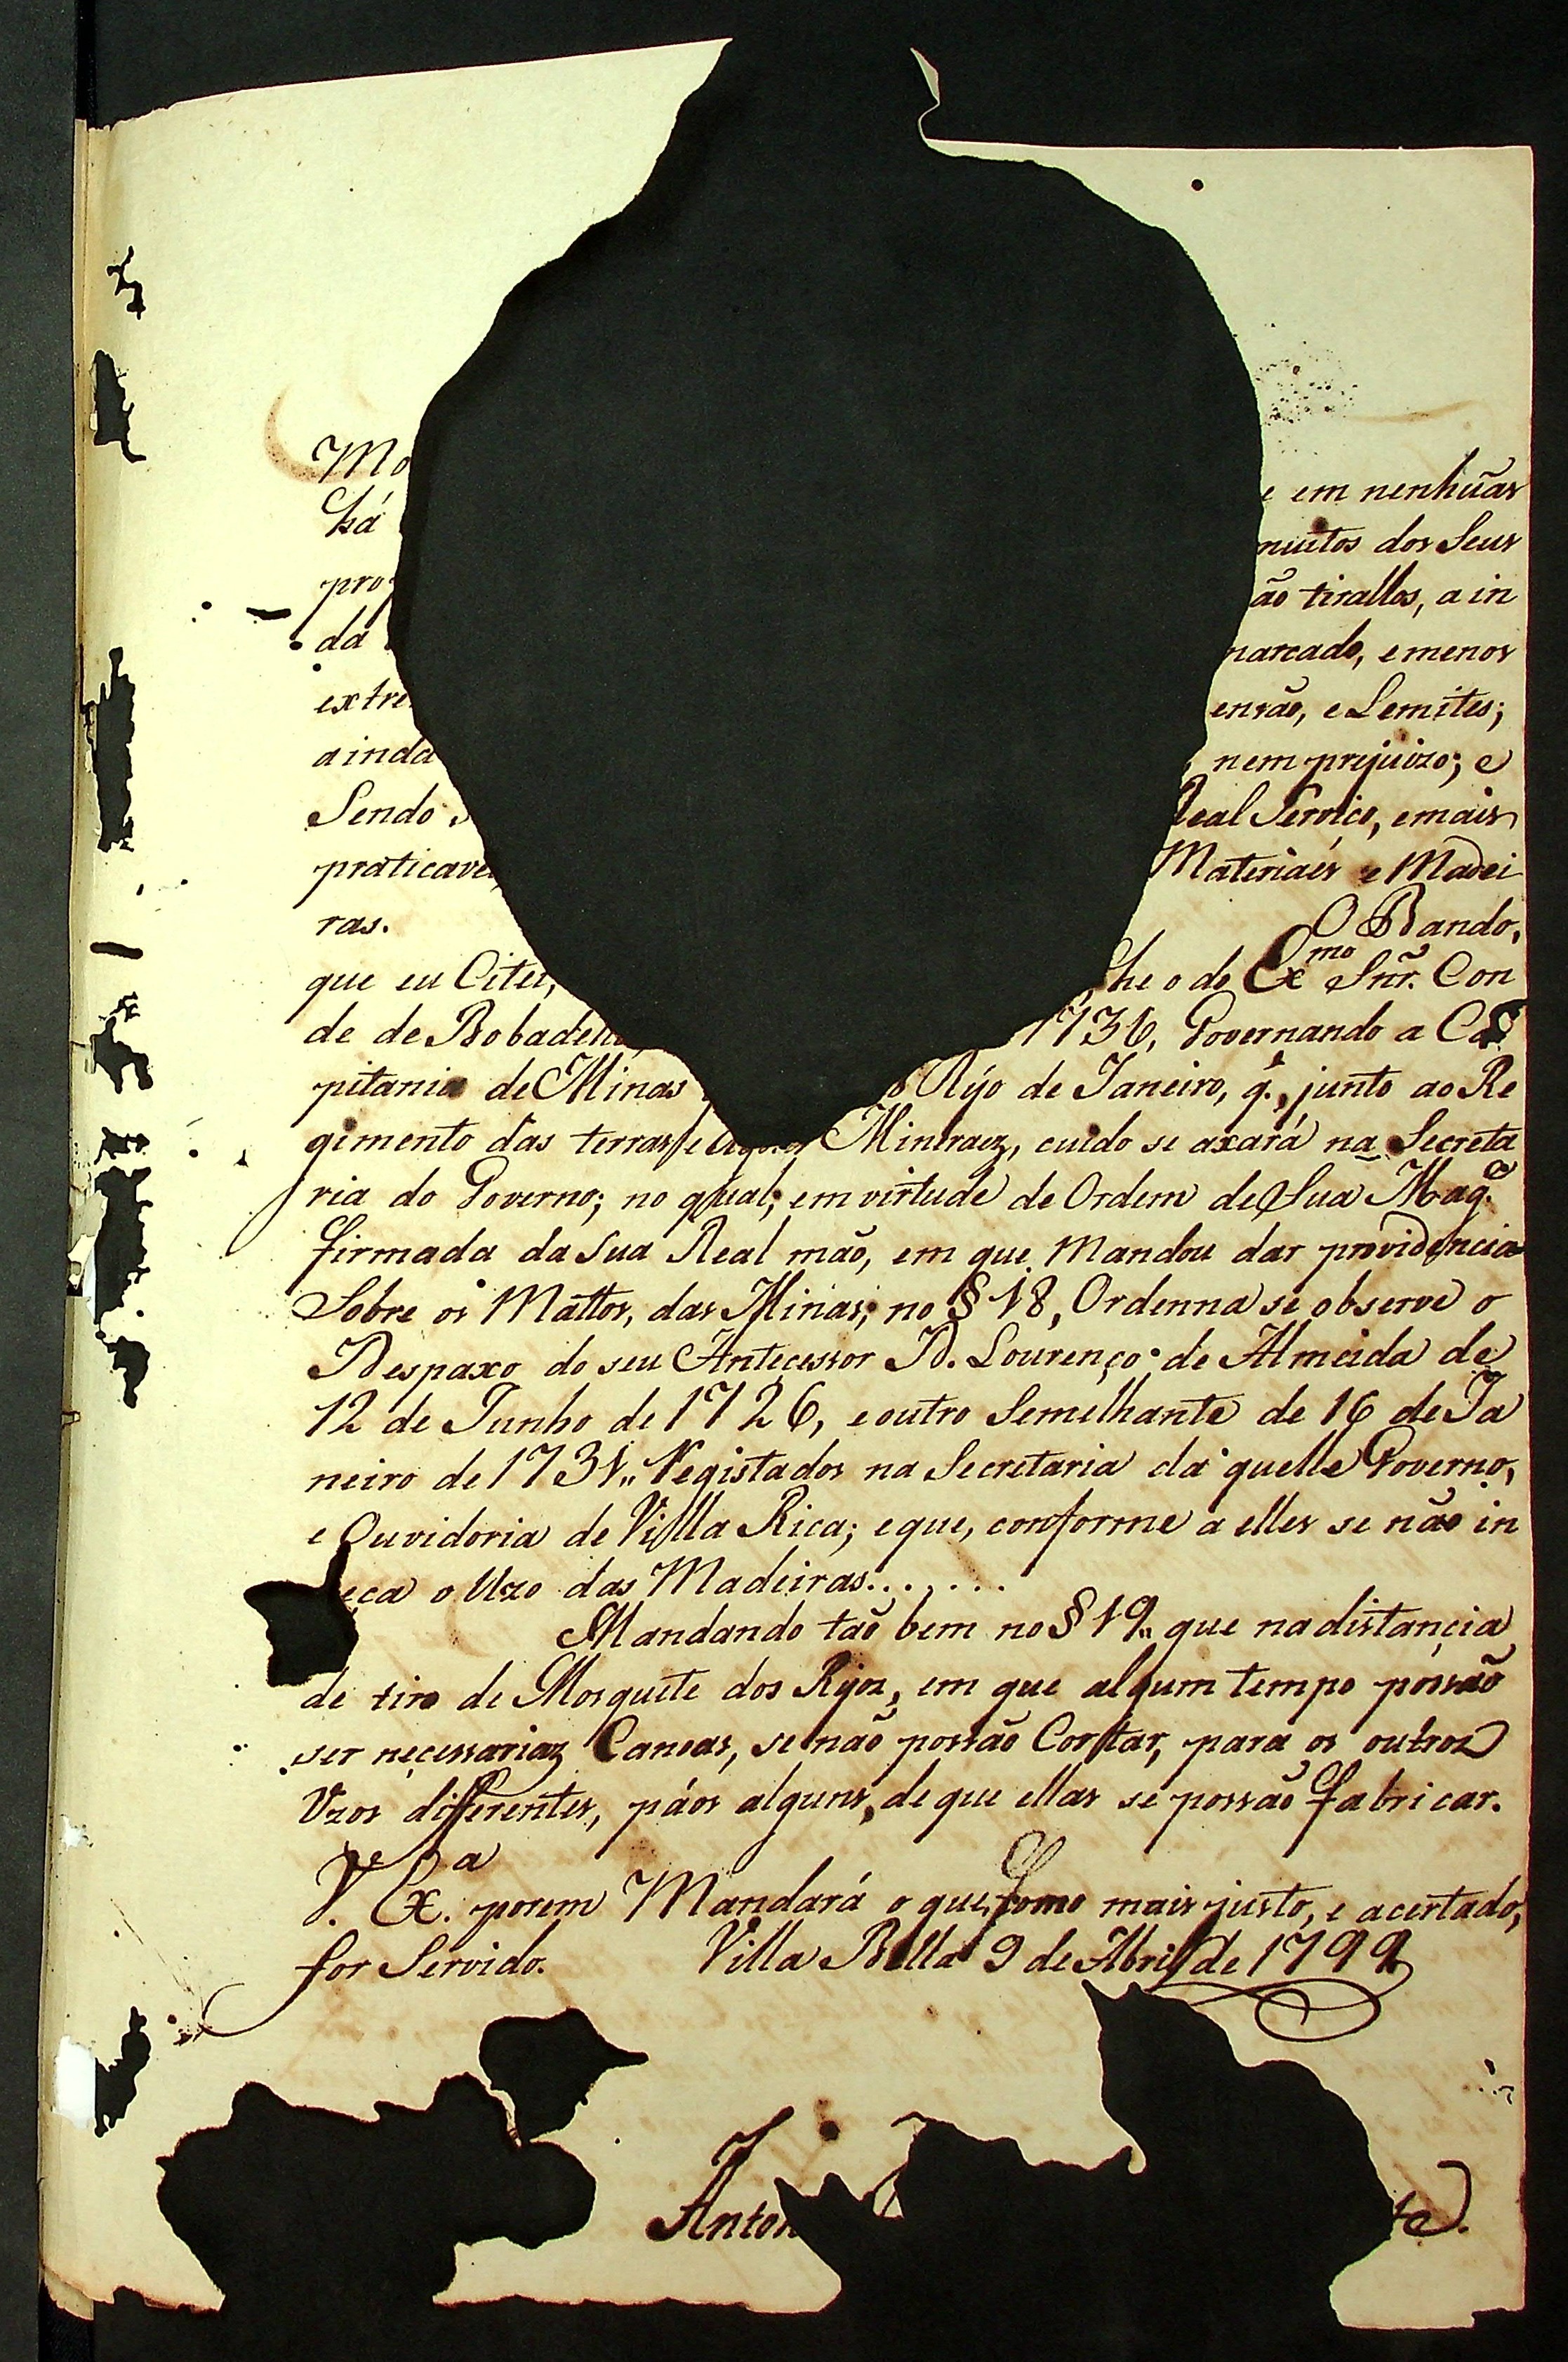 Mo e em nenhuãs
há muitos dos Seus
pro ão tirallos, a in
da marcado, e menos
extre ensão, e Lemites;
ainda nem prejuizo; e
Sendo Real Serviço, e mais
praticave Materiaes e Madei
ras. O Bando,
que eu Citei, he o do Exmo Snr. Con
de de Bobadell 1736, Governando a Ca
pitania de Minas Rÿo de Janeiro, q., junto ao Re
gimento das terras, e Agoas Mineraez, cuido se axará na Secreta
ria do Governo; no qual; em virtude de Ordem de Sua Mage.
firmada da sua Real mão, em que Mandou dar providencia
Sobre os Mattos, das Minas; no § 18, Ordenna se observe o
Despaxo do seu Anteçessor D. Lourenço de Almeida de
12 de Junho de 1726, e outro Semelhante de 16 de Ja
neiro de 1731,, Registados na Secretaria da quelle Governo,
e Ouvidoria de Villa Rica; e que, conforme a elles se não in
eça o Uzo das Madeiras.......
Mandando tão bem no § 19,, que na distançia
de tiro de Mosquete dos Rÿoz, em que algum tempo possão
ser neçessariaz Canoas, se não possão Cortar, para os outroz
Uzos differentes, páos alguns, de que ellas se possão fabricar.
V. Exa. porem Mandará o que, Como mais justo, e acertado,
for Servido. Villa Bella 9 de Abril de 1799
Anton te.